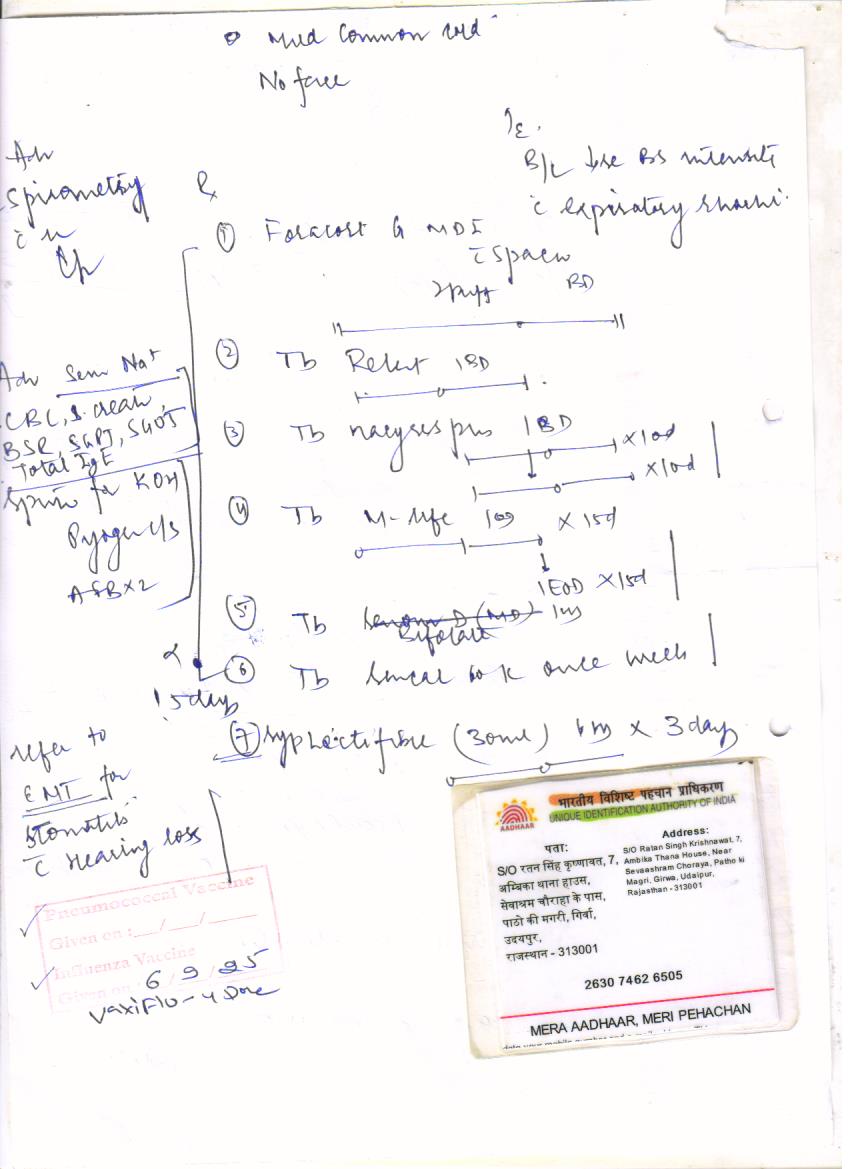 Mild Common cold
No fever
Adv
Spirometry
R
B/L BS intensity
expiratory rhonchi.
① Foracort G MDI
c̄ Spacer
2puff BD
② Tb 1BD
Adv Sem Na+
CBC, S. creat,
BSR, SGPT, SGOT
Total IgE
③ Tb plus 1BD x10d
x10d
for KOH
Pyogen c/s
AFB x 2
④ Tb 1OD x 15d
1EOD x 15d
⑤ Tb
⑥ Tb 60 K once week
15day
⑦ Syp (30ml) x 3 day
refer to
ENT for
Stomatitis
c̄ Hearing loss
Pneumococcal Vaccine
Given on : __/__/____
Influenza Vaccine
Given on 6/9/25
VaxiFlu-4 Done
भारतीय विशिष्ट पहचान प्राधिकरण
UNIQUE IDENTIFICATION AUTHORITY OF INDIA
AADHAAR
पता:
S/O रतन सिंह कृष्णावत, 7,
अम्बिका थाना हाउस,
सेवाश्रम चौराहा के पास,
पाठो की मगरी, गिर्वा,
उदयपुर,
राजस्थान - 313001
Address:
S/O Ratan Singh Krishnawat, 7,
Ambika Thana House, Near
Sevaashram Choraya, Patho ki
Magri, Girwa, Udaipur,
Rajasthan - 313001
2630 7462 6505
MERA AADHAAR, MERI PEHACHAN